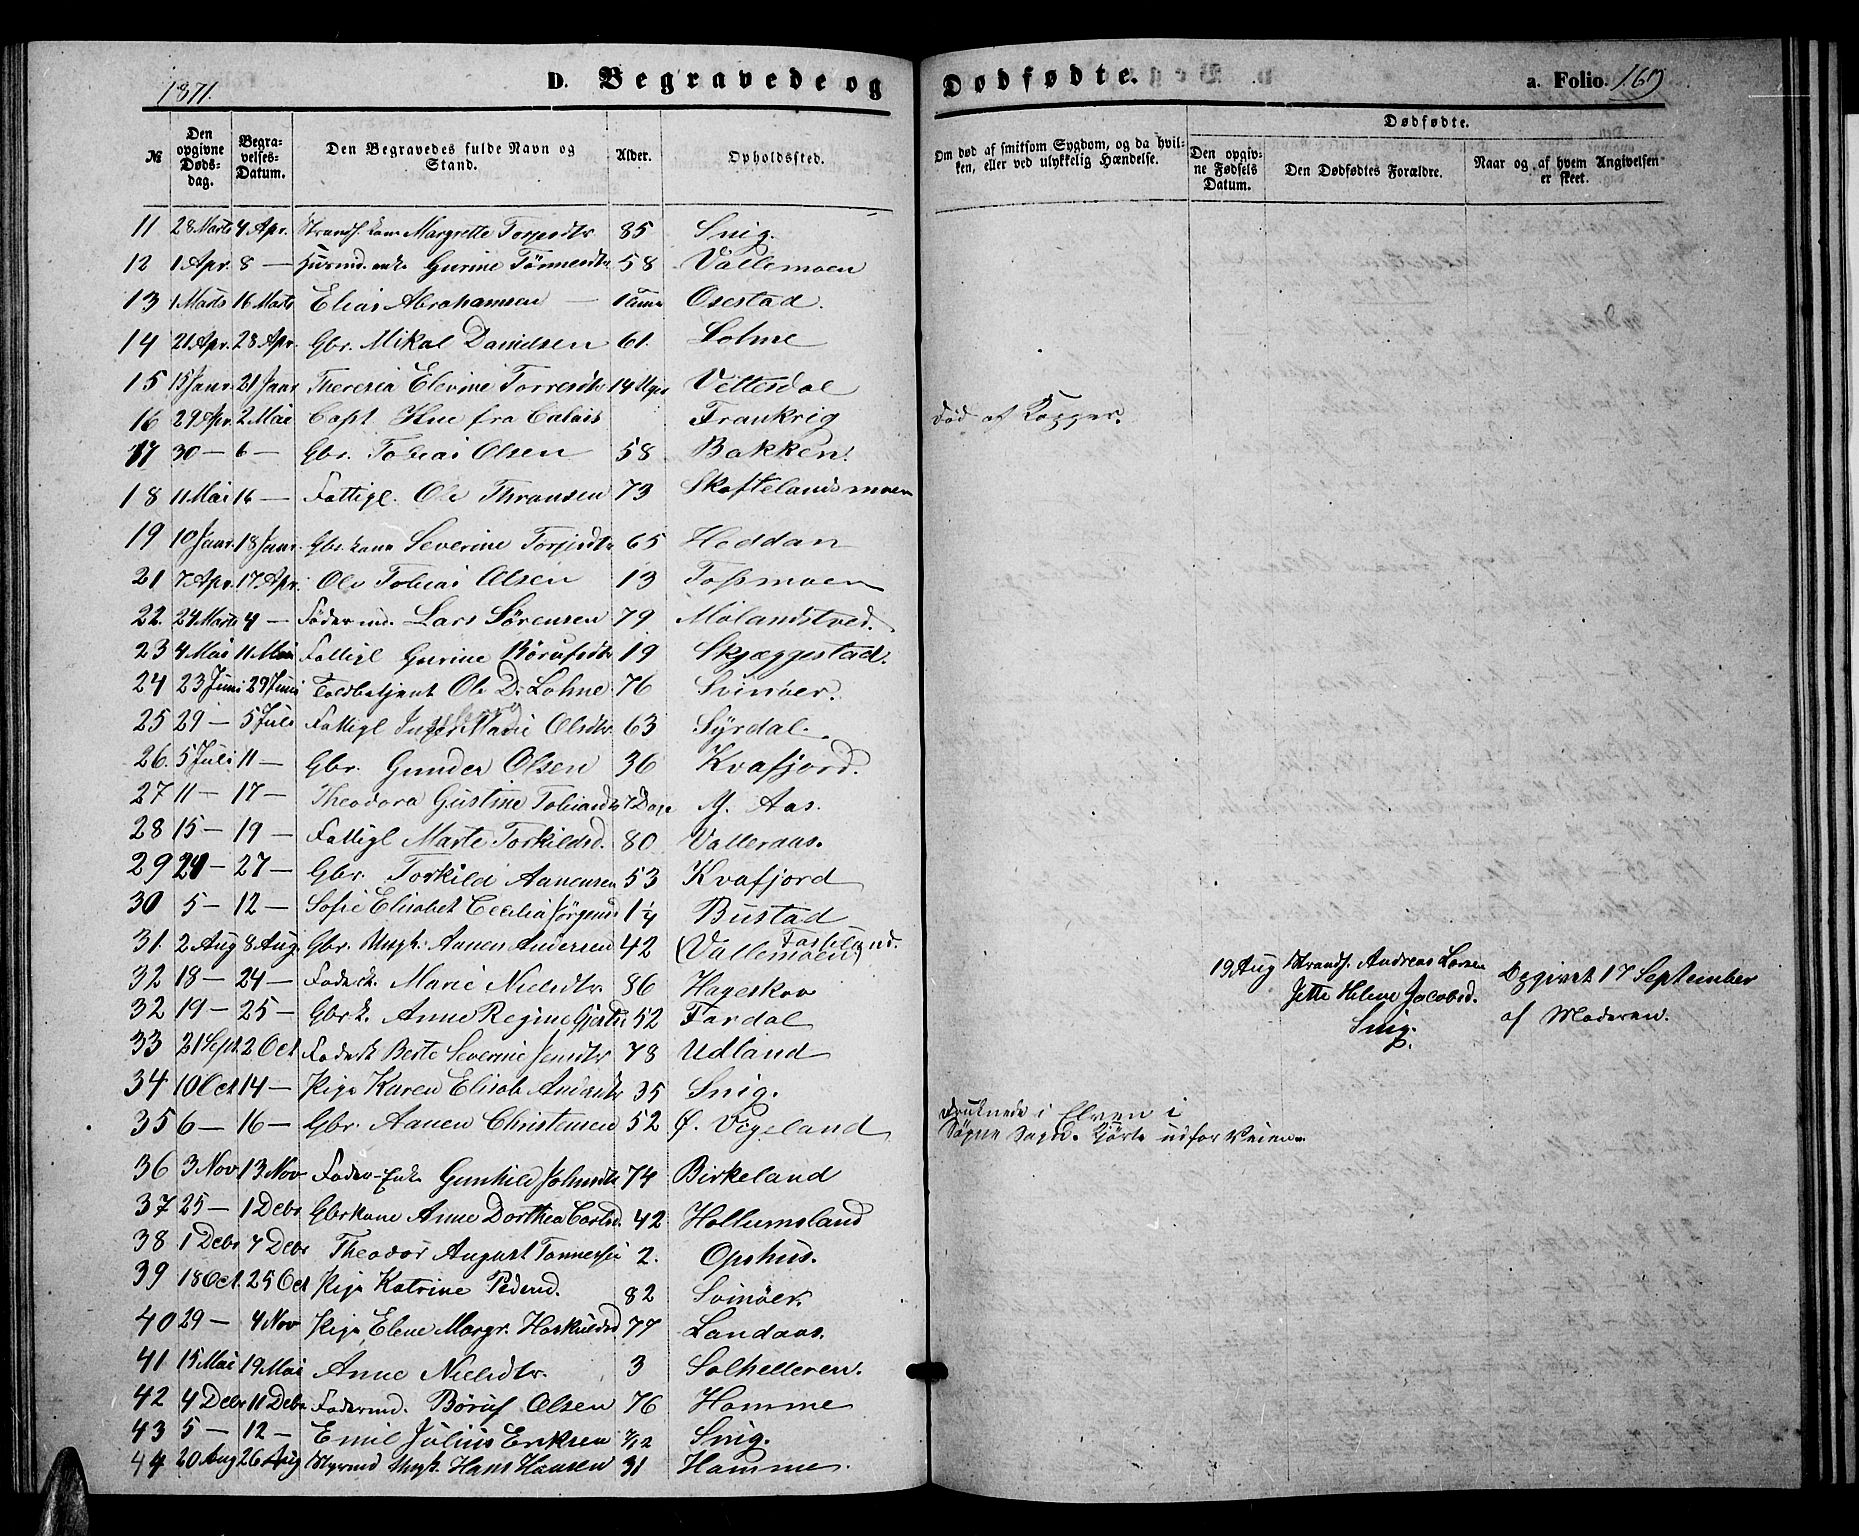 1871.
D. Begravede og Dødfødte.
a. Folio. 169
№
Den opgivne Dødsdag.
Begravelses-Datum.
Den Begravedes fulde Navn og Stand.
Alder.
Opholdssted.
Om død af smitsom Sygdom, og da hvilken, eller ved ulykkelig Hændelse.
Dødfødte.
Den opgivne Fødsels Datum.
Den Dødfødtes Forældre.
Naar og af hvem Angivelsen er skeet.
11 28 Marts 4 Apr. Strandf. kone Margrette Torjusdtr 85 Snig.
12 1 Apr. 8 — Husmd. enke Gurine Tønnesdtr 58 Vallemoen
13 1 Marts 16 Marts Elias Abrahamsen — 1 Osestad.
14 21 Apr. 28 Apr. Gbr. Mikal Danidsen 61. Lohne
15 15 Janr. 21 Janr Theresia Elevine Torresdtr 14 Uger Vittesdal
16 29 Apr. 2 Mai Capt. fra Calais Frankrig Død af Kopper.
17 30 — 6 — Gbr. Tobias Olsen 58 Bakken.
18 11 Mai 16 — Fattigl. Ole Thronsen 73 Skoftelandsmoen
19 10 Janr. 18 Janr. Gbr. kone Severine Torjusdtr 65 Heddan
21 7 Apr. 17 Apr. Ole Tobias Olsen 13 Fossmoen
22. 24 Marts 4 — Fødermd. Lars Sørensen 79 Mølandstved.
23 4 Mai 11 Mai Fattigl Gurine Børufsdtr 19 Skjæggestad.
24 23 Juni 29 Juni Toldbetjent Ole D. Lohne 76 Svinøer.
25 29 — 5 Juli Fattigl Inger Marie Olsdtr. 63 Syrdal.
26. 5 Juli 11 — Gbr. Gunder Olsen 36 Kvafjord.
27 11 — 17 — Theodora Gustine Tobiasdtr 7 Dage Y. Aas.
28 15 — 19 — Fattigl Marte Torkildsd. 80 Valleraas.
29 21 — 27 — Gbr. Torkild Aanensen 53 Kvafjord
30 5 — 12 — Sofie Elisabet Cecilia Jørgensd 1¼ Bustad
31. 2 Aug 8 Aug. Gbr. Ungk. Aanen Andersen 42 (Vallemoen)
32 18 — 24 — Føderk. Marie Nielsdtr. 86 Hageskov
19 Aug Strandf. Andreas Larsen Jette Helene Jacobsd. Snig. Opgivet 17 September af Moderen.
32 19 — 25 — Gbrk. Anne Regine Gjertsd 52 Fardal
33 21 Sept. 2 Oct Føderk Berte Severine Jensdtr 78 Udland
34 10 Oct 14 — Pige Karen Elisab Andrsdtr 35 Snig.
35 6 — 16 — Gbr. Aanen Christensen 52 Ø. Vigeland Druknede i Elven i
Søgne Sogn. Kjørte udfor Veien
36 3 Nov 13 Nov Føder-Enke Gunhild Johnsdtr 74 Birkeland
37 25 — 1 Debr Gbrkone Anne Dorthea Carlsd. 42 Hollumsland
38 1 Debr 7 Debr Theodor August Tønnessen 2. Opshus.
39 18 Oct. 25 Oct Pige Katrine Pedersd. 82 Svinøer.
40 29 — 4 Nov Pige Elene Margr. Haskildsd 77 Landaas.
41 15 Mai 19 Mai Anne Nielsdtr. 3 Solhelleren.
42 4 Debr 11 Debr Føderind. Børuf Olsen 76 Homme
43 5 — 12 — Emil Julius Eriksen 7/12 Snig.
44 20 Aug 26 Aug Styrmd Ungk. Hans Hansen 31 Homme.